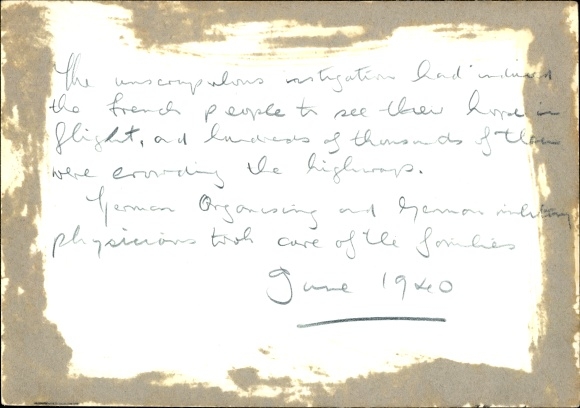 The unscrupulous instigation had induced
the French people to see their hope in
flight, and hundreds of thousands of them
were crowding the highways.
German Organising and German military
physicians took care of the families
June 1940